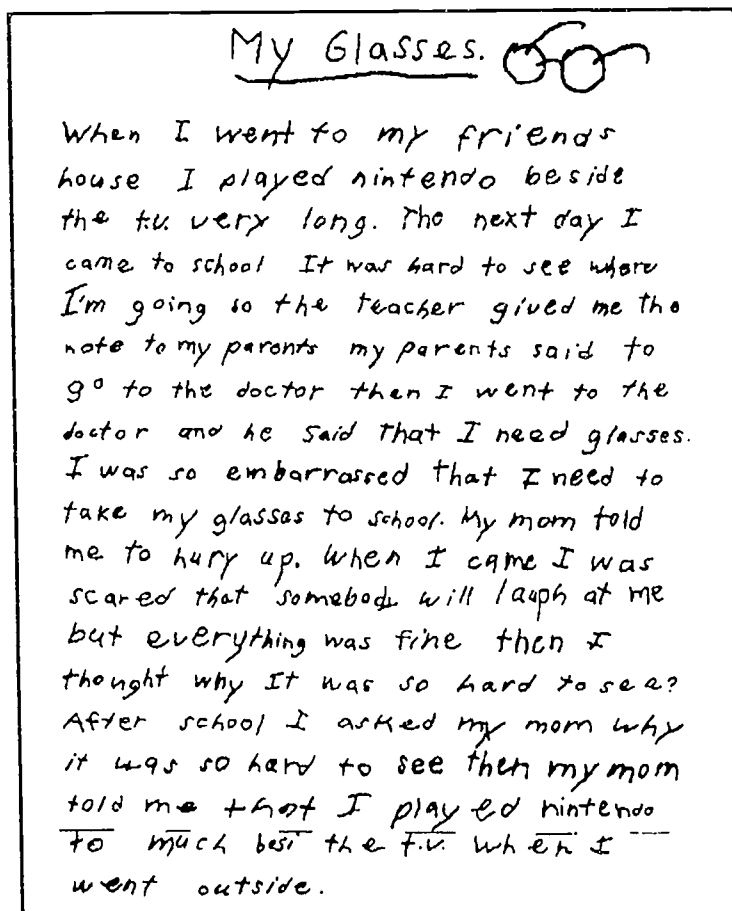 My Glasses.
When I went to my friends
house I played nintendo beside
the t.v. very long. The next day I
came to school It was hard to see where
I'm going so the teacher gived me the
note to my parents my parents said to
go to the doctor then I went to the
doctor and he said that I need glasses.
I was so embarrassed that I need to
take my glasses to school. My mom told
me to hury up. When I came I was
scared that somebody will laugh at me
but everything was fine then I
thought why It was so hard to see?
After school I asked my mom why
it was so hard to see then my mom
told me that I played nintendo
to much besi the t.v. when I
went outside.